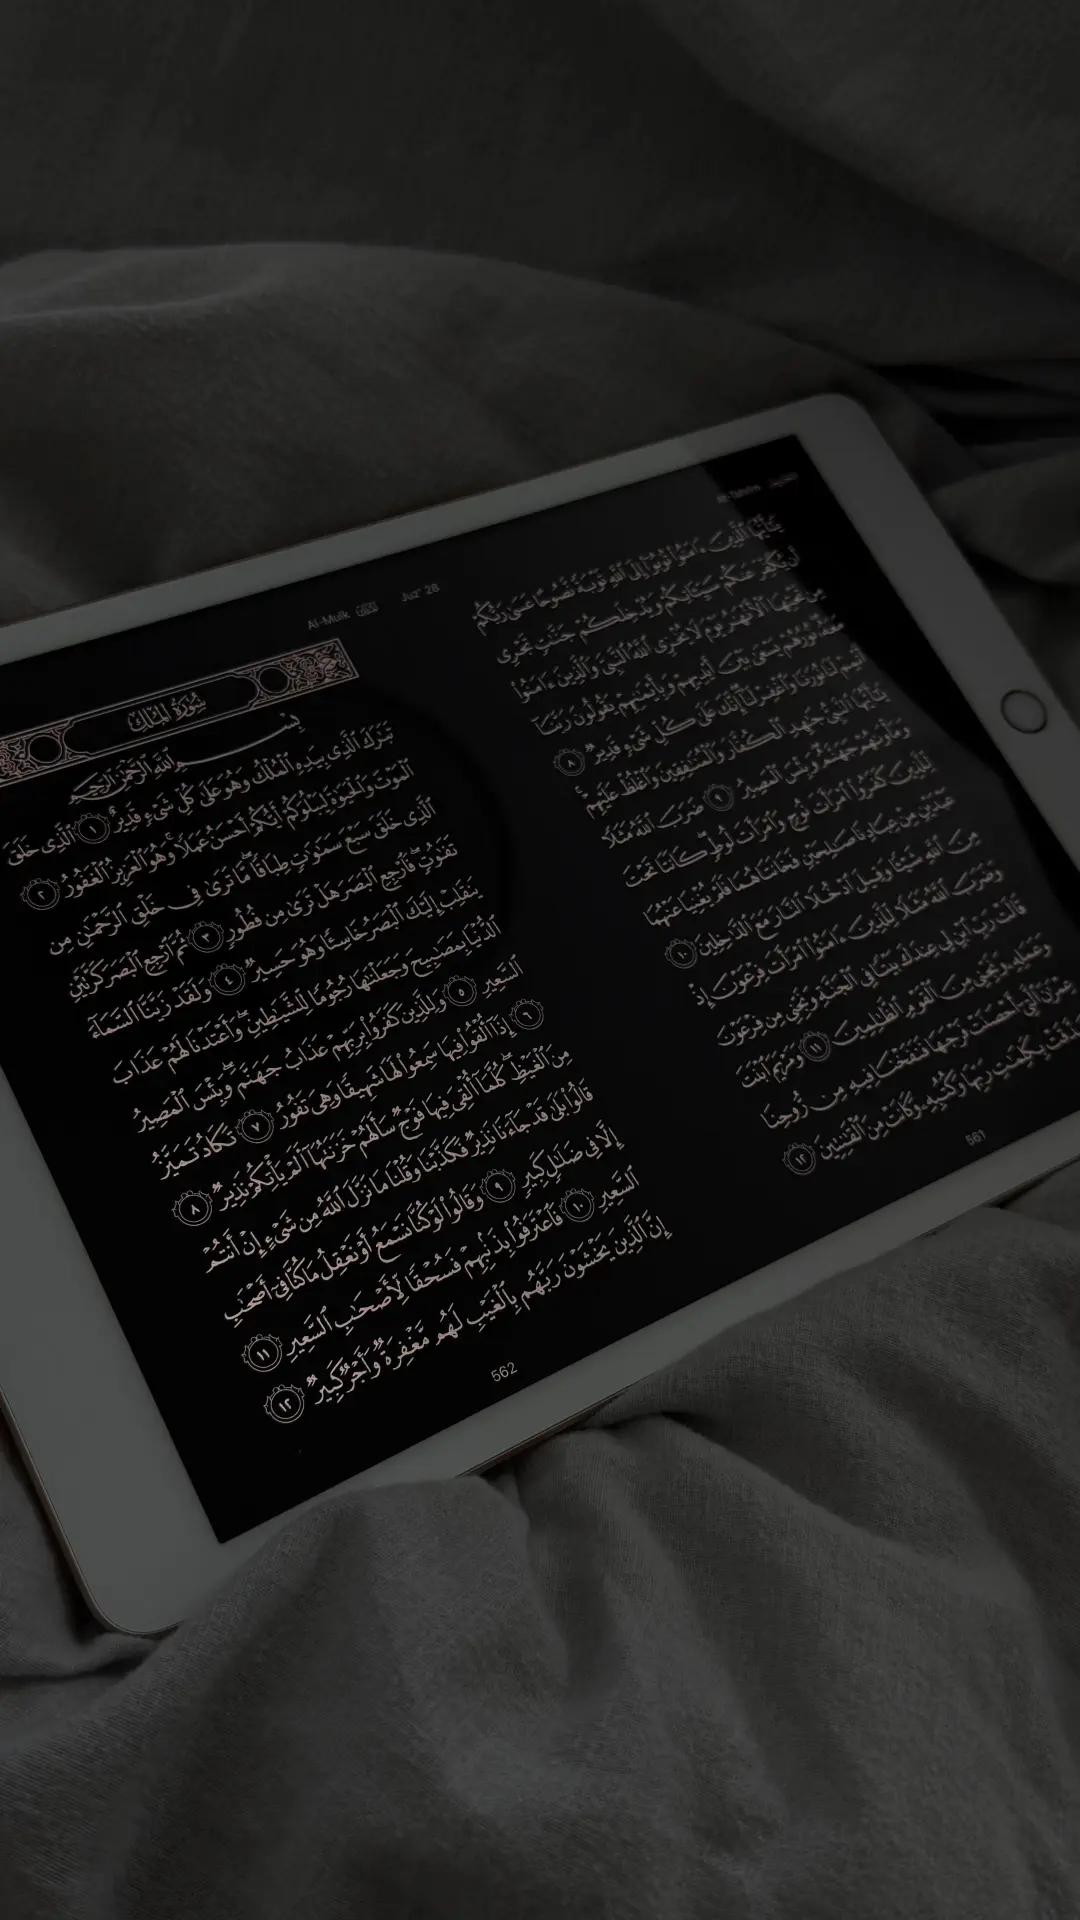 At-Tahrim التحريم
يَـٰٓأَيُّهَا ٱلَّذِينَ ءَامَنُوا۟ تُوبُوٓا۟ إِلَى ٱللَّهِ تَوْبَةً نَّصُوحًا عَسَىٰ رَبُّكُمْ
أَن يُكَفِّرَ عَنكُمْ سَيِّـَٔاتِكُمْ وَيُدْخِلَكُمْ جَنَّـٰتٍ تَجْرِى
مِن تَحْتِهَا ٱلْأَنْهَـٰرُ يَوْمَ لَا يُخْزِى ٱللَّهُ ٱلنَّبِىَّ وَٱلَّذِينَ ءَامَنُوا۟
مَعَهُۥ نُورُهُمْ يَسْعَىٰ بَيْنَ أَيْدِيهِمْ وَبِأَيْمَـٰنِهِمْ يَقُولُونَ رَبَّنَآ
أَتْمِمْ لَنَا نُورَنَا وَٱغْفِرْ لَنَآ إِنَّكَ عَلَىٰ كُلِّ شَىْءٍ قَدِيرٌ ٨
يَـٰٓأَيُّهَا ٱلنَّبِىُّ جَـٰهِدِ ٱلْكُفَّارَ وَٱلْمُنَـٰفِقِينَ وَٱغْلُظْ عَلَيْهِمْ
وَمَأْوَىٰهُمْ جَهَنَّمُ وَبِئْسَ ٱلْمَصِيرُ ٩ ضَرَبَ ٱللَّهُ مَثَلًا
لِّلَّذِينَ كَفَرُوا۟ ٱمْرَأَتَ نُوحٍ وَٱمْرَأَتَ لُوطٍ كَانَتَا تَحْتَ
عَبْدَيْنِ مِنْ عِبَادِنَا صَـٰلِحَيْنِ فَخَانَتَاهُمَا فَلَمْ يُغْنِيَا عَنْهُمَا
مِنَ ٱللَّهِ شَيْـًٔا وَقِيلَ ٱدْخُلَا ٱلنَّارَ مَعَ ٱلدَّٰخِلِينَ ١٠
وَضَرَبَ ٱللَّهُ مَثَلًا لِّلَّذِينَ ءَامَنُوا۟ ٱمْرَأَتَ فِرْعَوْنَ إِذْ
قَالَتْ رَبِّ ٱبْنِ لِى عِندَكَ بَيْتًا فِى ٱلْجَنَّةِ وَنَجِّنِى مِن فِرْعَوْنَ
وَعَمَلِهِۦ وَنَجِّنِى مِنَ ٱلْقَوْمِ ٱلظَّـٰلِمِينَ ١١ وَمَرْيَمَ ٱبْنَتَ
عِمْرَٰنَ ٱلَّتِىٓ أَحْصَنَتْ فَرْجَهَا فَنَفَخْنَا فِيهِ مِن رُّوحِنَا
وَصَدَّقَتْ بِكَلِمَـٰتِ رَبِّهَا وَكُتُبِهِۦ وَكَانَتْ مِنَ ٱلْقَـٰنِتِينَ ١٢
561
Al-Mulk الملك Juz' 28
سُورَةُ المُلْكِ
بِسْمِ ٱللَّهِ ٱلرَّحْمَـٰنِ ٱلرَّحِيمِ
تَبَـٰرَكَ ٱلَّذِى بِيَدِهِ ٱلْمُلْكُ وَهُوَ عَلَىٰ كُلِّ شَىْءٍ قَدِيرٌ ١ ٱلَّذِى خَلَقَ
ٱلْمَوْتَ وَٱلْحَيَوٰةَ لِيَبْلُوَكُمْ أَيُّكُمْ أَحْسَنُ عَمَلًا وَهُوَ ٱلْعَزِيزُ ٱلْغَفُورُ ٢
ٱلَّذِى خَلَقَ سَبْعَ سَمَـٰوَٰتٍ طِبَاقًا مَّا تَرَىٰ فِى خَلْقِ ٱلرَّحْمَـٰنِ مِن
تَفَـٰوُتٍ فَٱرْجِعِ ٱلْبَصَرَ هَلْ تَرَىٰ مِن فُطُورٍ ٣ ثُمَّ ٱرْجِعِ ٱلْبَصَرَ كَرَّتَيْنِ
يَنقَلِبْ إِلَيْكَ ٱلْبَصَرُ خَاسِئًا وَهُوَ حَسِيرٌ ٤ وَلَقَدْ زَيَّنَّا ٱلسَّمَآءَ
ٱلدُّنْيَا بِمَصَـٰبِيحَ وَجَعَلْنَـٰهَا رُجُومًا لِّلشَّيَـٰطِينِ وَأَعْتَدْنَا لَهُمْ عَذَابَ
ٱلسَّعِيرِ ٥ وَلِلَّذِينَ كَفَرُوا۟ بِرَبِّهِمْ عَذَابُ جَهَنَّمَ وَبِئْسَ ٱلْمَصِيرُ
٦ إِذَآ أُلْقُوا۟ فِيهَا سَمِعُوا۟ لَهَا شَهِيقًا وَهِىَ تَفُورُ ٧ تَكَادُ تَمَيَّزُ
مِنَ ٱلْغَيْظِ كُلَّمَآ أُلْقِىَ فِيهَا فَوْجٌ سَأَلَهُمْ خَزَنَتُهَآ أَلَمْ يَأْتِكُمْ نَذِيرٌ ٨
قَالُوا۟ بَلَىٰ قَدْ جَآءَنَا نَذِيرٌ فَكَذَّبْنَا وَقُلْنَا مَا نَزَّلَ ٱللَّهُ مِن شَىْءٍ إِنْ أَنتُمْ
إِلَّا فِى ضَلَـٰلٍ كَبِيرٍ ٩ وَقَالُوا۟ لَوْ كُنَّا نَسْمَعُ أَوْ نَعْقِلُ مَا كُنَّا فِىٓ أَصْحَـٰبِ
ٱلسَّعِيرِ ١٠ فَٱعْتَرَفُوا۟ بِذَنۢبِهِمْ فَسُحْقًا لِّأَصْحَـٰبِ ٱلسَّعِيرِ ١١
إِنَّ ٱلَّذِينَ يَخْشَوْنَ رَبَّهُم بِٱلْغَيْبِ لَهُم مَّغْفِرَةٌ وَأَجْرٌ كَبِيرٌ ١٢
562